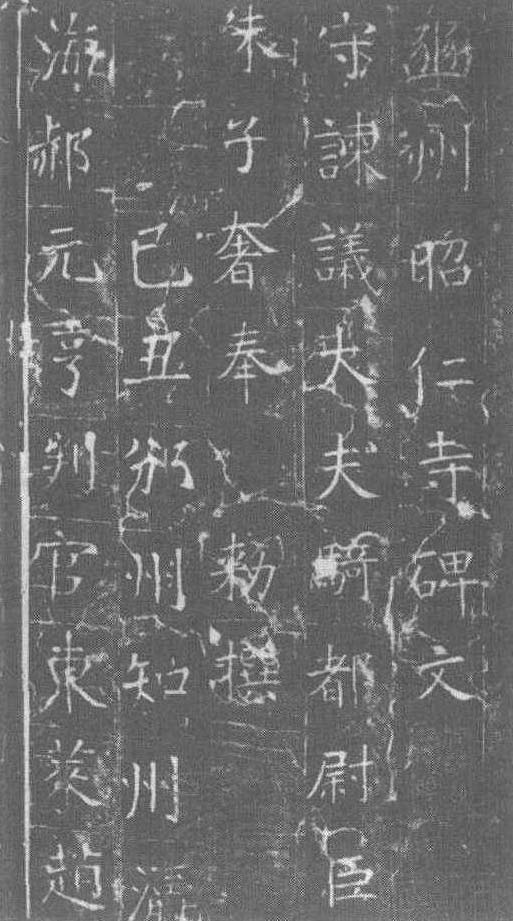 豳州昭仁寺碑文
守諫議大夫騎都尉臣
朱子奢奉勅撰
己丑邠州知州
海郝元亨判官東萊趙